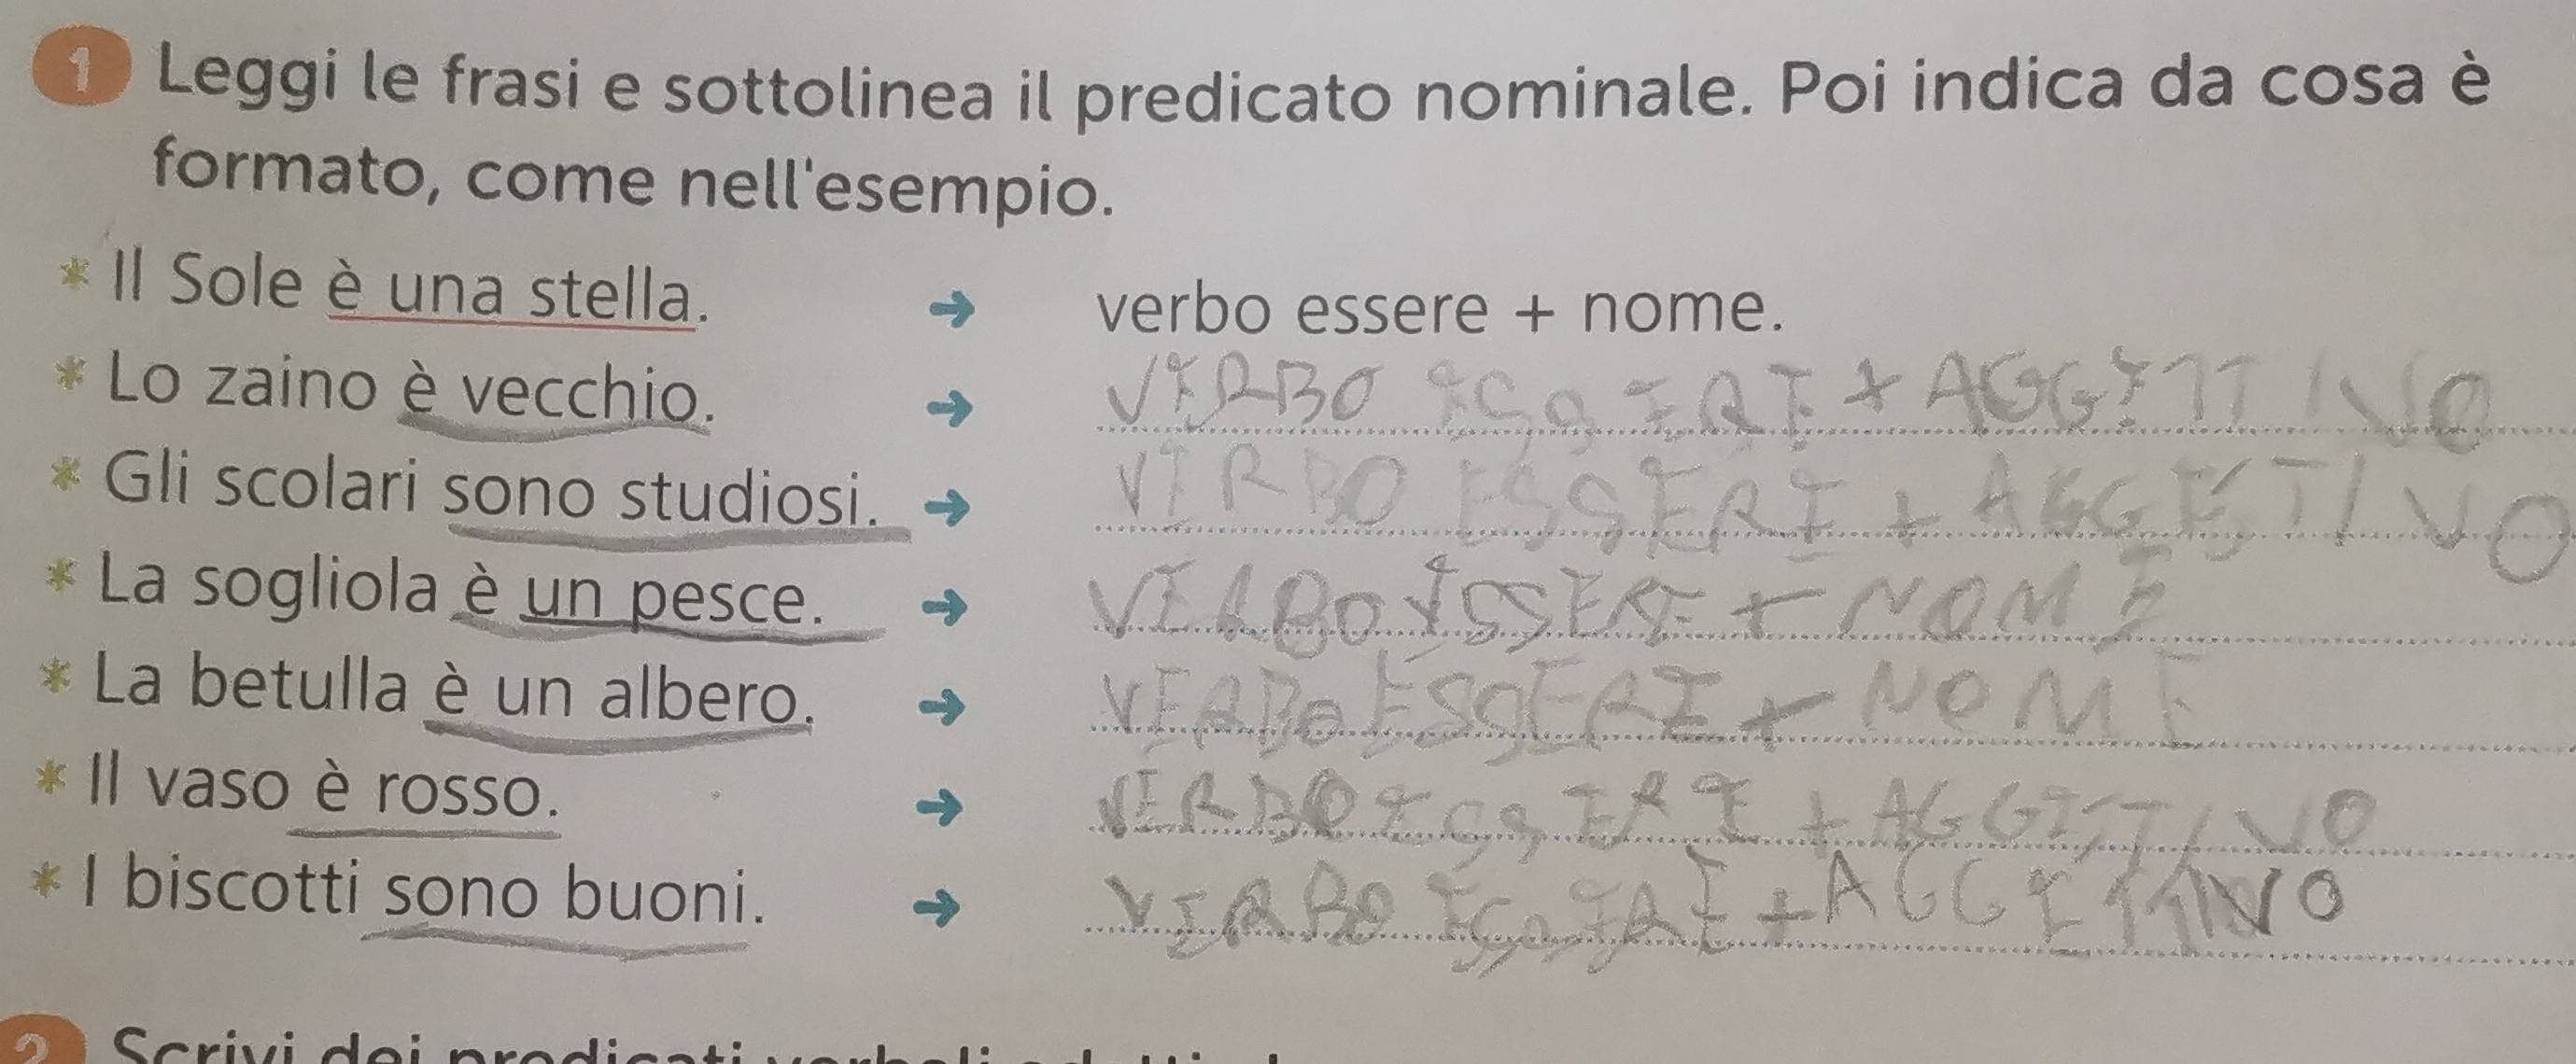 1 Leggi le frasi e sottolinea il predicato nominale. Poi indica da cosa è
formato, come nell'esempio.
* Il Sole è una stella. → verbo essere + nome.
* Lo zaino è vecchio. → VERBO ESSERE + AGGETTIVO
* Gli scolari sono studiosi. → VERBO ESSERE + AGGETTIVO
* La sogliola è un pesce. → VERBO ESSERE + NOME
* La betulla è un albero. → VERBO ESSERE + NOME
* Il vaso è rosso. → VERBO ESSERE + AGGETTIVO
* I biscotti sono buoni. → VERBO ESSERE + AGGETTIVO
2 Scrivi dei predicati verbali